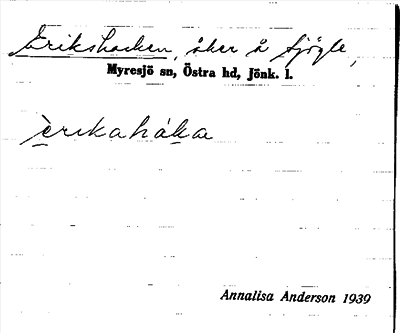 Erikshacken, åker å Sjögle,
Myresjö sn, Östra hd, Jönk. l.
èrikaháka
Annalisa Anderson 1939